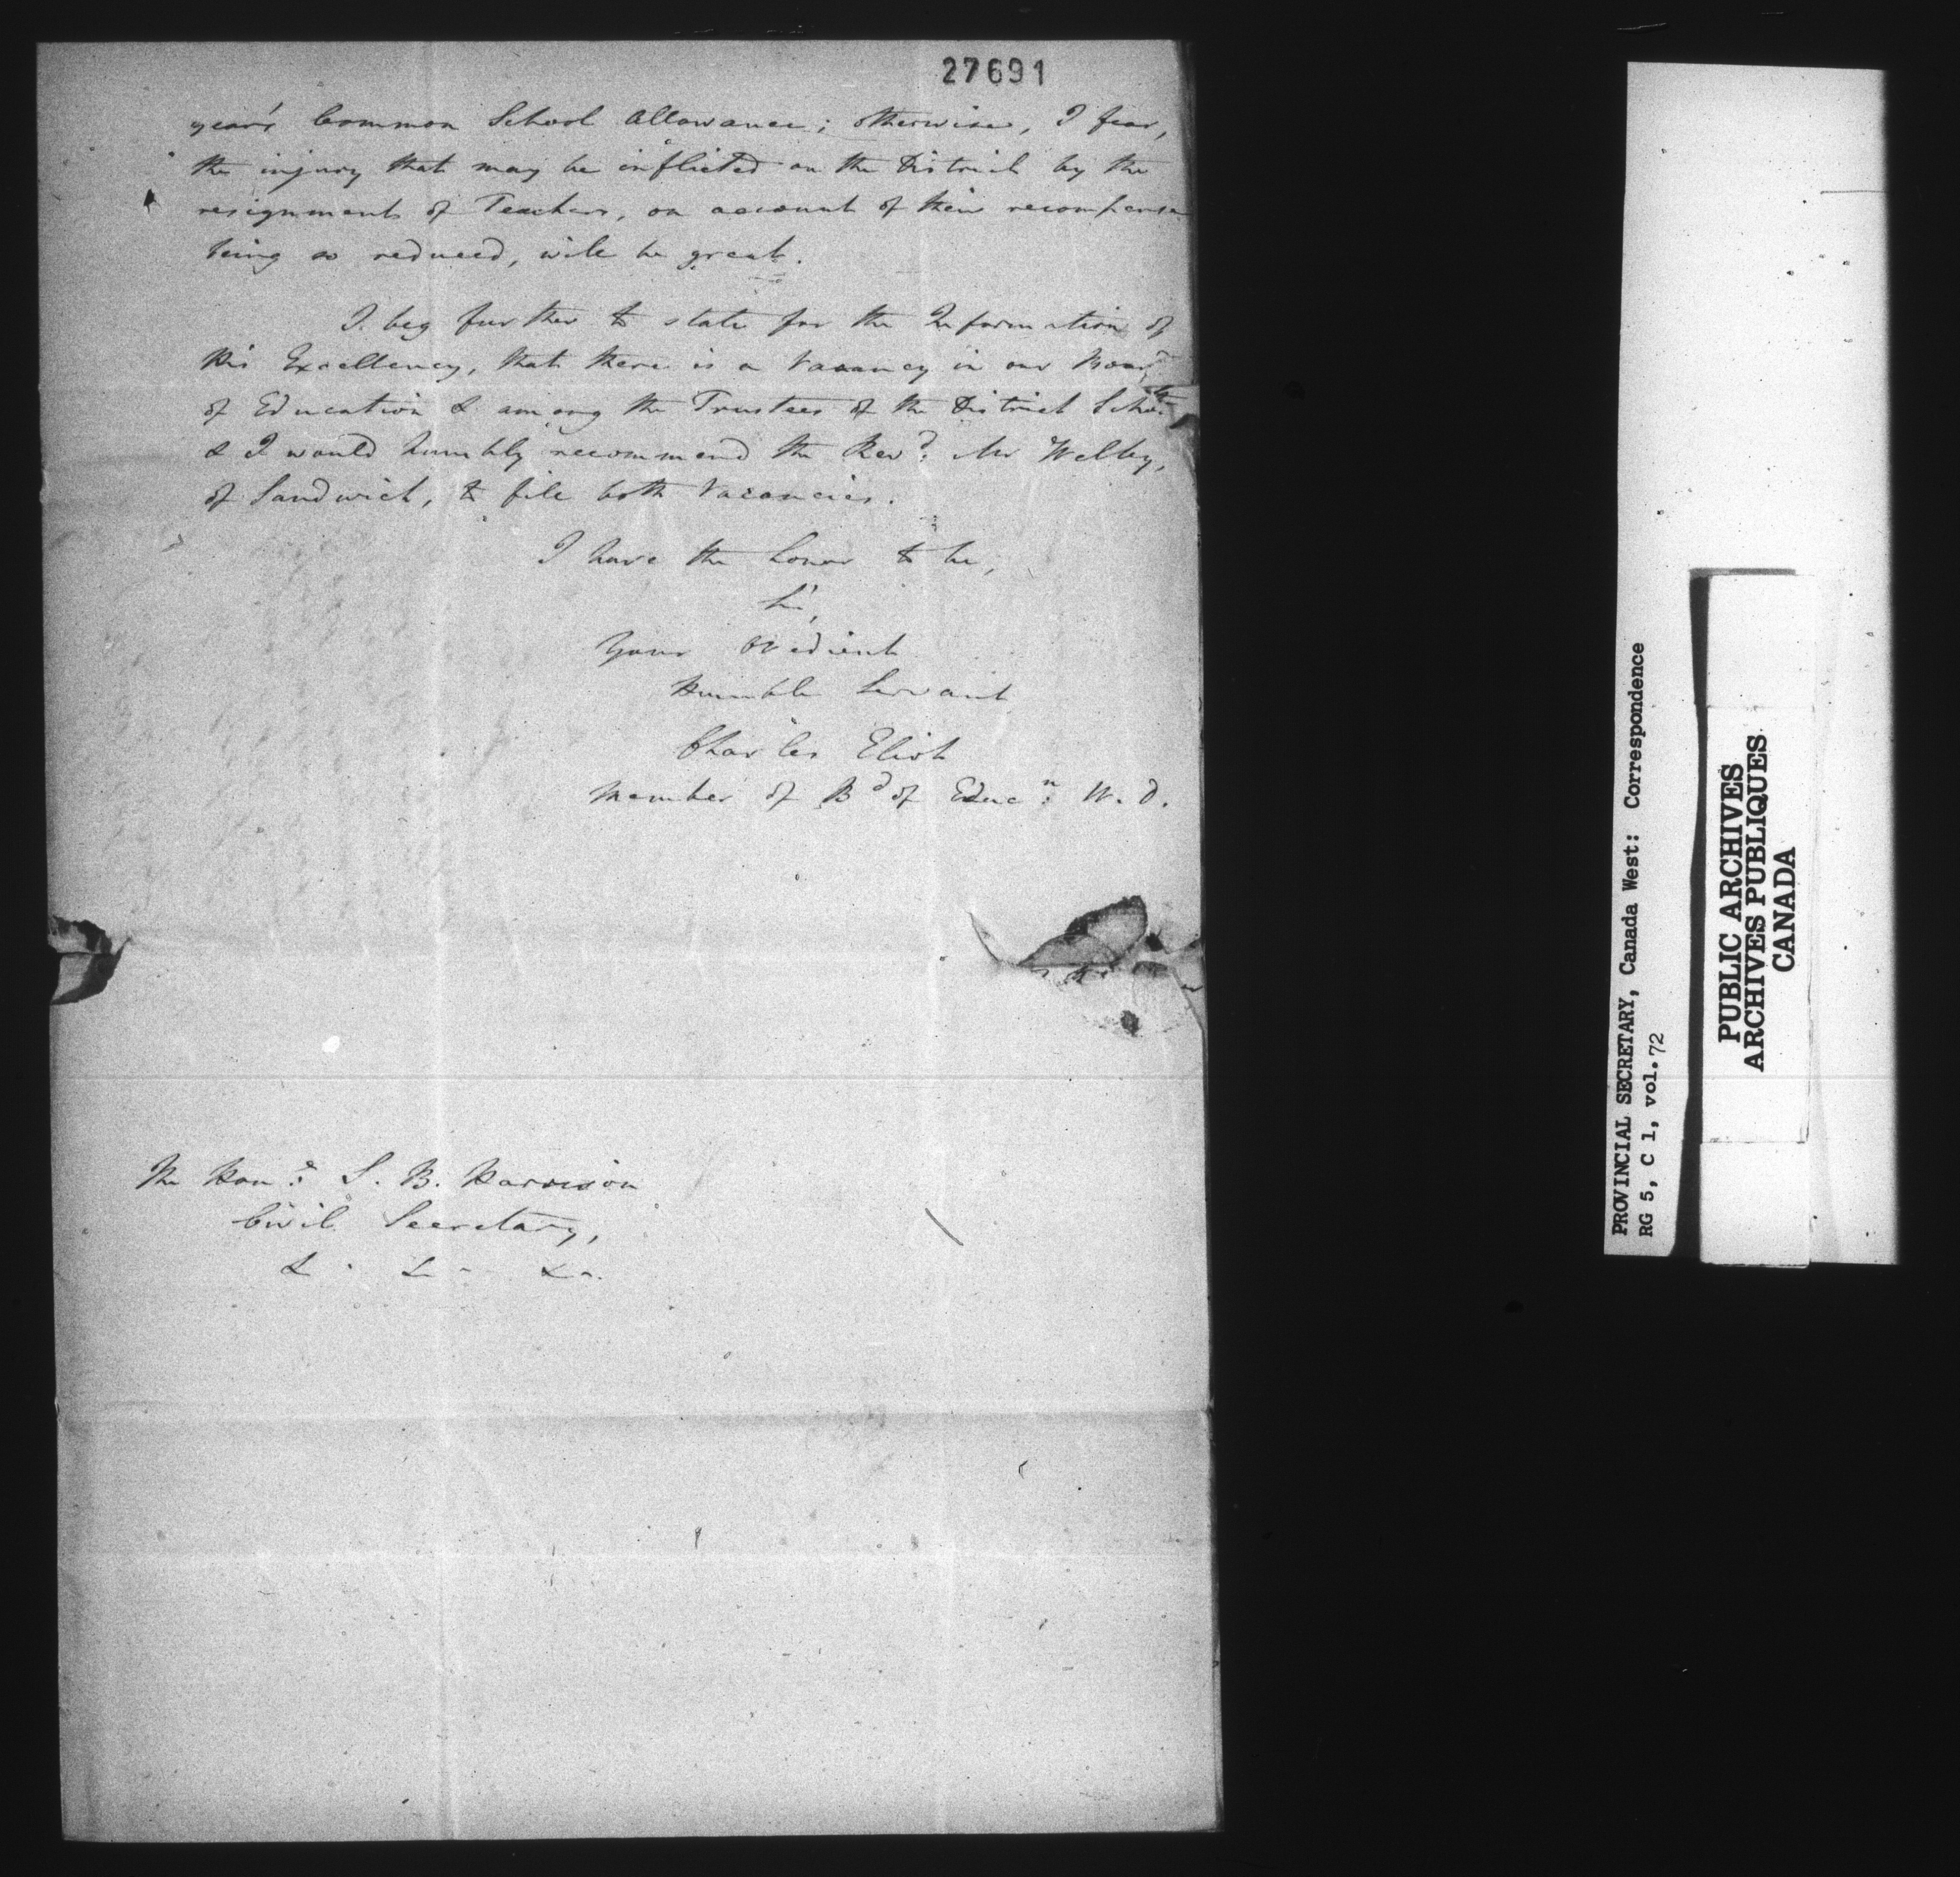 27691
year's Common School Allowance; otherwise, I fear,
the injury that may be inflicted on the District by the
resignment of Teachers, on account of their recompense
being so reduced, will be great.
I beg further to state for the Information of
His Excellency, that there is a Vacancy in our Board
of Education & among the Trustees of the District School
& I would humbly recommend the Revd. Mr Welby,
of Sandwich, to fill both Vacancies.
I have the honor to be,
Sir,
Your Obedient
Humble Servant
Charles Eliot
Member of Bd of Educn: W. D.
The Hone: S. B. Harrison
Civil Secretary,
& & &
PROVINCIAL SECRETARY, Canada West: Correspondence
RG 5, C 1, vol. 72
PUBLIC ARCHIVES
ARCHIVES PUBLIQUES
CANADA